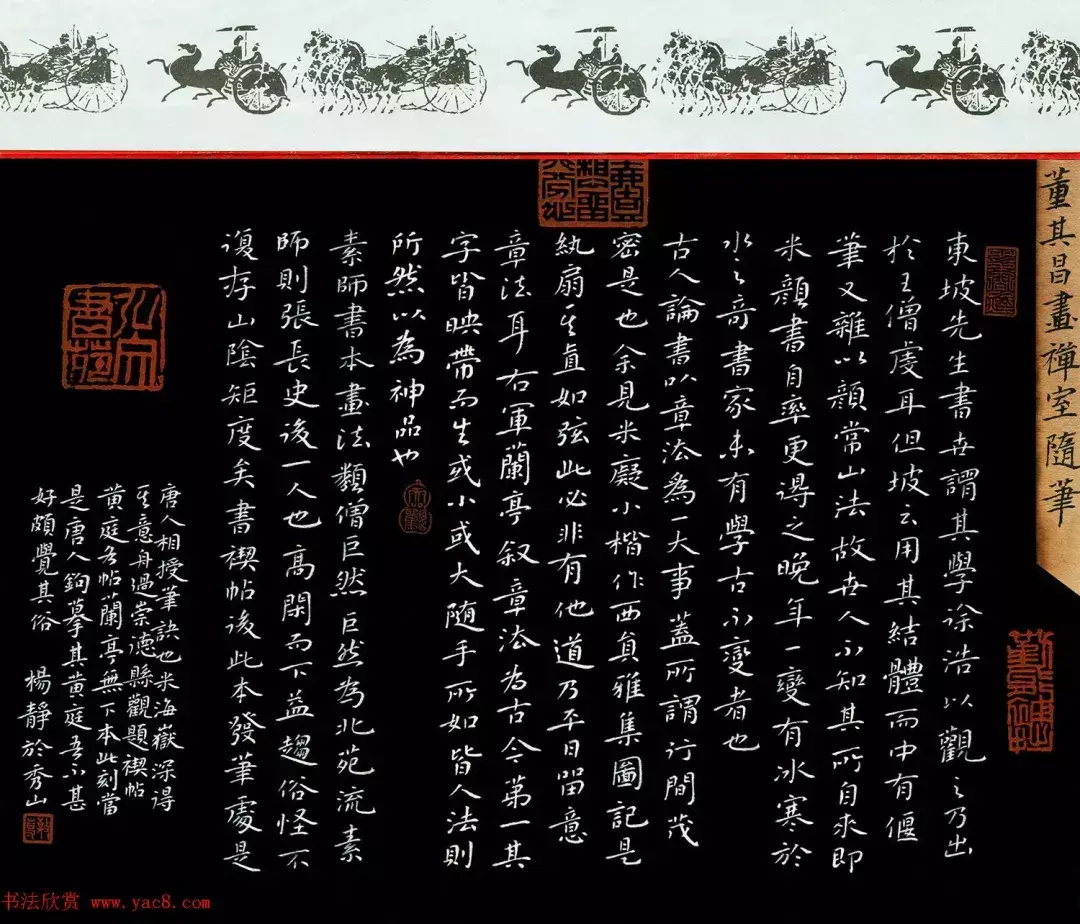 董其昌畫禪室隨筆
東坡先生書世謂其學徐浩以觀之乃出
於王僧虔耳但坡云用其結體而中有偃
筆又雜以顏常山法故世人不知其所自求即
米顏書自率更得之晚年一變有冰寒於
水之奇書家未有學古不變者也
古人論書以章法為一大事蓋所謂行間茂
密是也余見米癡小楷作西真雅集圖記是
紈扇其直如弦此必非有他道乃平日留意
章法耳右軍蘭亭叙章法為古今第一其
字皆映帶而生或小或大随手所如皆入法則
所然以為神品也
素師書本畫法類僧巨然巨然為北苑流素
師則張長史後一人也高閑而下益趨俗怪不
復存山陰矩度矣書禊帖後此本發筆處是
唐人相授筆訣也米海嶽深得
其意舟過崇德縣觀題禊帖
黄庭吾帖蘭亭無下本此刻當
是唐人鉤摹其黄庭吾不甚
好頗覺其俗 楊靜於秀山
书法欣赏 www.yac8.com